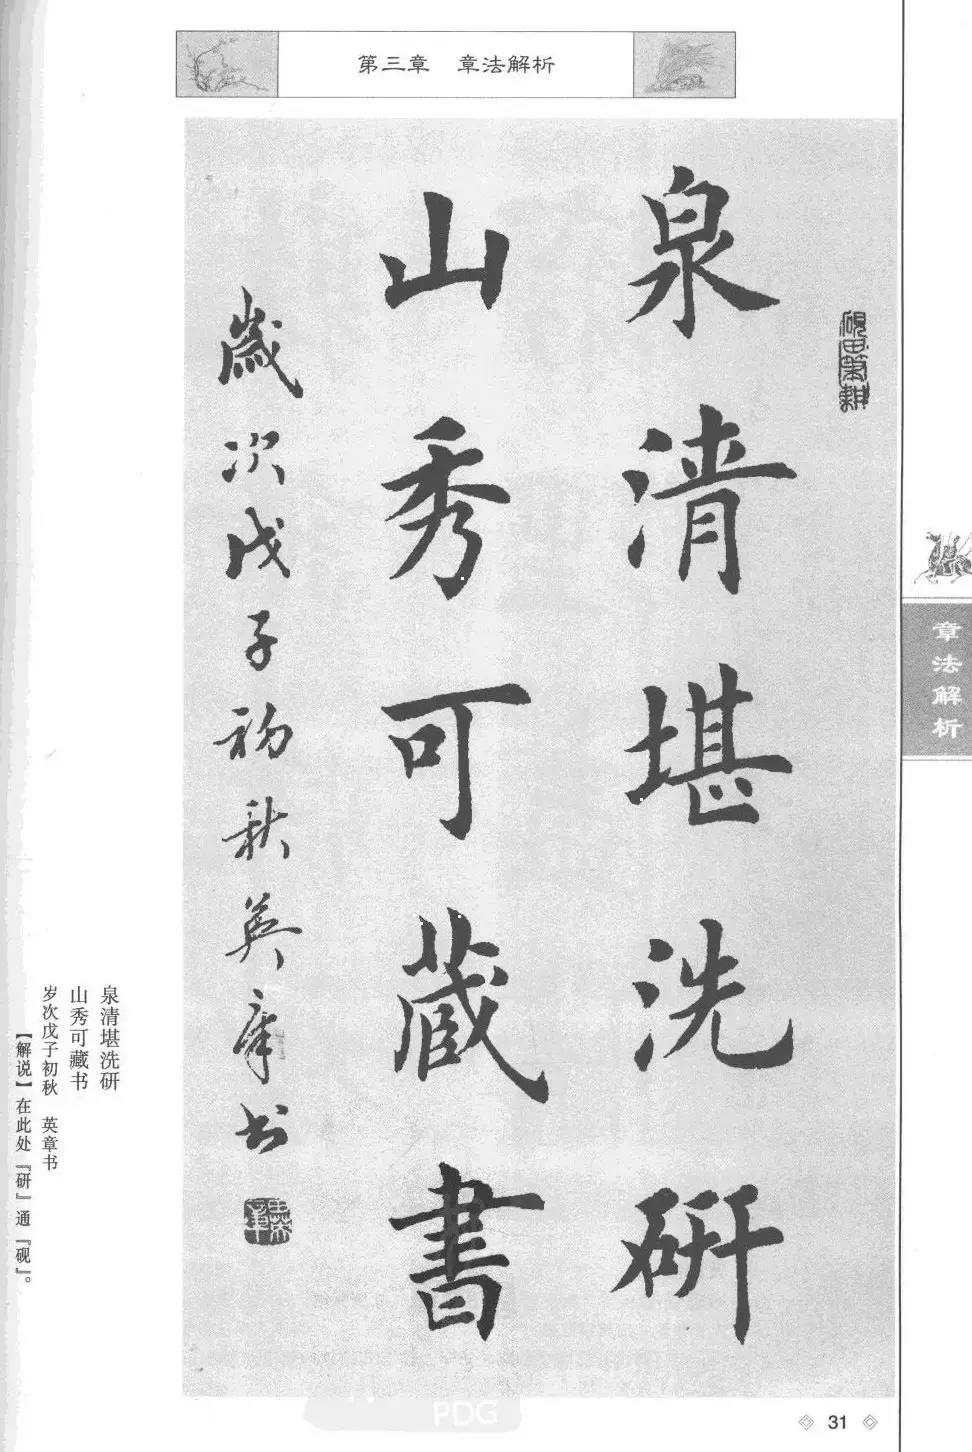 第三章 章法解析
泉清堪洗研
山秀可藏書
歲次戊子初秋英章书
砚田笔耕
章法解析
泉清堪洗研
山秀可藏书
岁次戊子初秋 英章书
【解说】在此处『研』通『砚』。
31
PDG